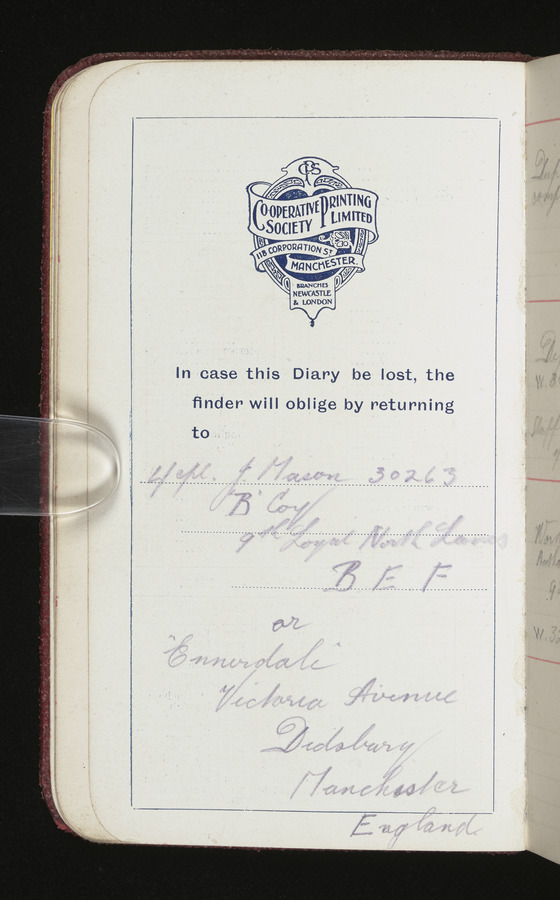 CPS
COOPERATIVE PRINTING
SOCIETY LIMITED
118 CORPORATION ST
MANCHESTER.
BRANCHES
NEWCASTLE
& LONDON
In case this Diary be lost, the
finder will oblige by returning
to
L/Cpl. J. Mason 30263
"B" Coy
9th Loyal North Lancs
B E F
or
"Ennerdale"
Victoria Avenue
Didsbury
Manchester
England